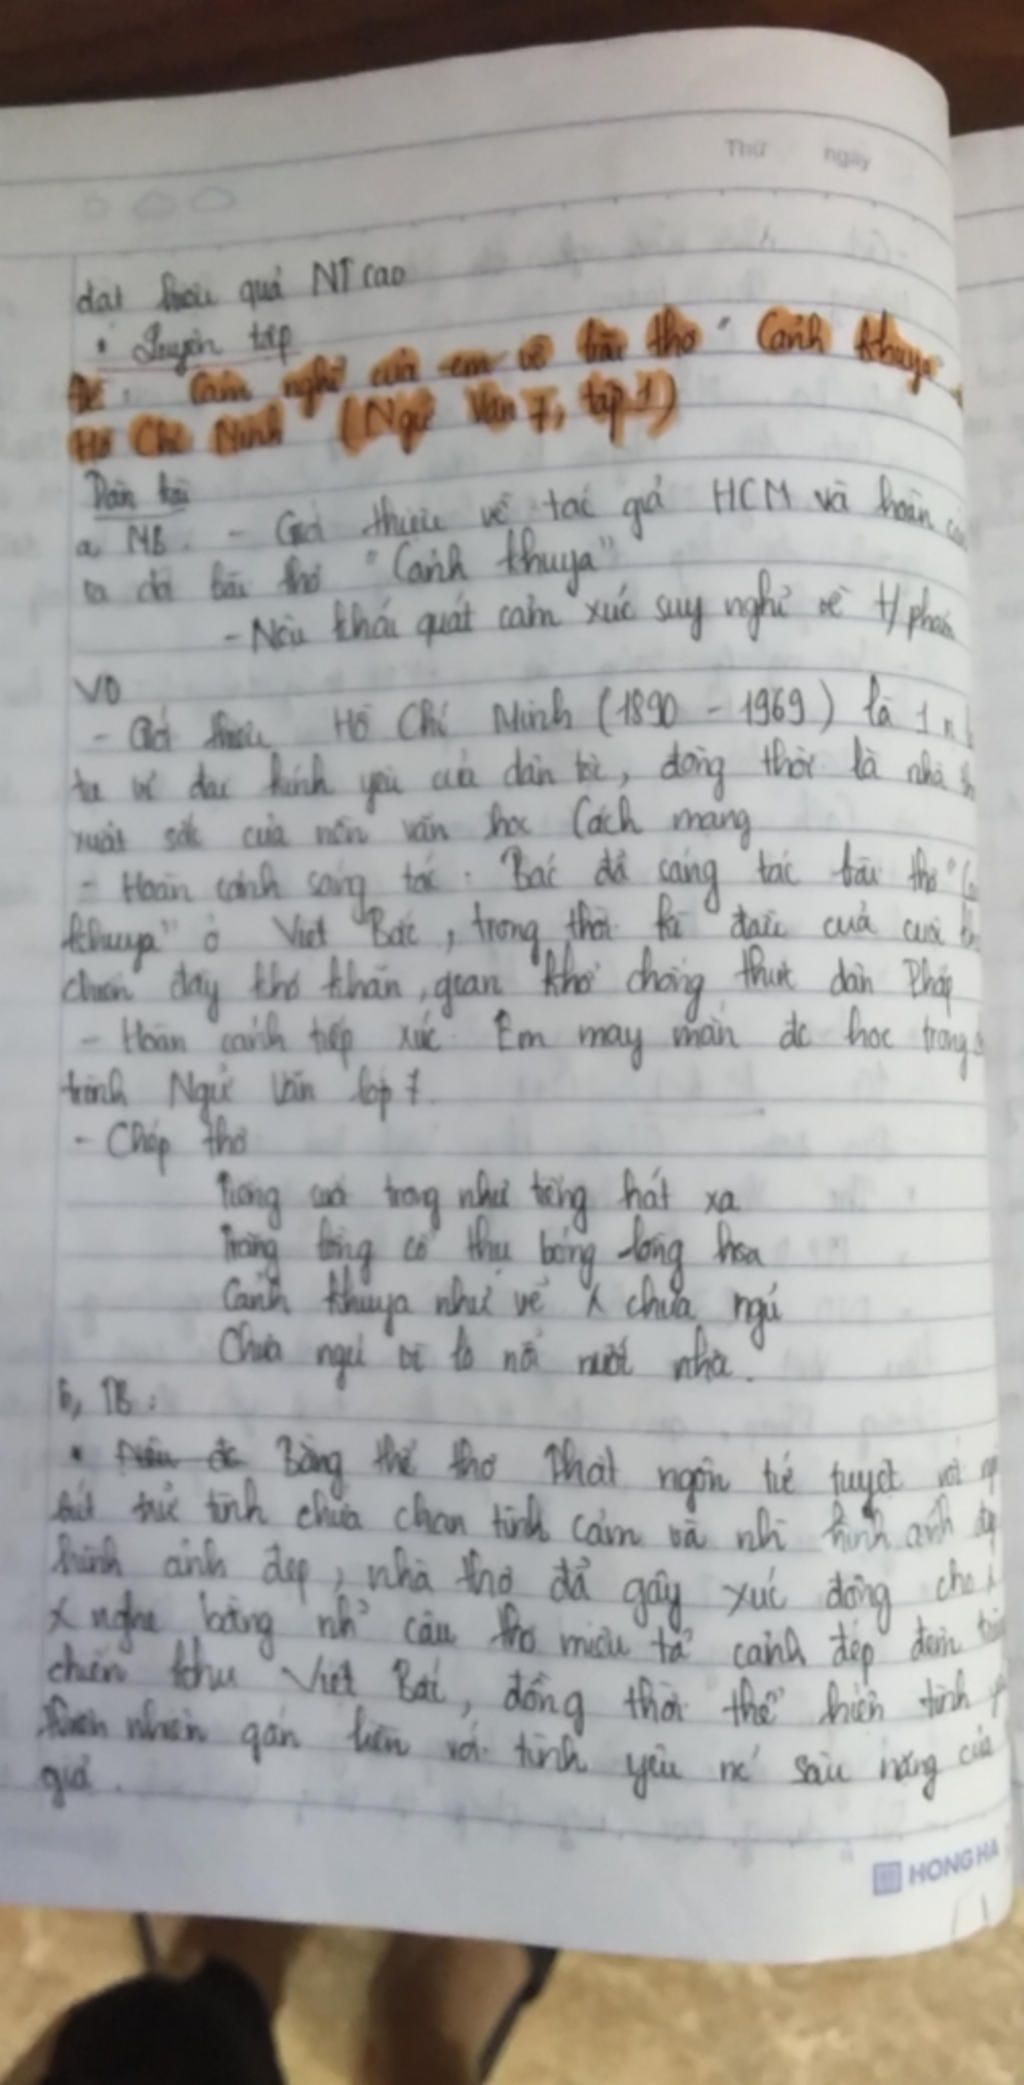 Thứ ngày
đạt hiệu quả NT cao
• Luyện tập
Đề: Cảm nghĩ của em về bài thơ "Cảnh khuya"
Hồ Chí Minh (Ngữ Văn 7, tập 1)
Dàn bài
a, MB. - Giới thiệu về tác giả HCM và hoàn
ra đời bài thơ "Cảnh khuya"
- Nêu khái quát cảm xúc suy nghĩ về t/phẩm
VD
- Giới thiệu Hồ Chí Minh (1890 - 1969) là 1
tụ vĩ đại kính yêu của dân tộc, đồng thời là nhà
xuất sắc của nền văn học Cách mạng
- Hoàn cảnh sáng tác: Bác đã sáng tác bài thơ
khuya" ở Việt Bắc, trong thời kì đầu của cuộc
chiến đầy khó khăn, gian khổ chống thực dân Pháp
- Hoàn cảnh tiếp xúc: Em may mắn đc học trong
trình Ngữ Văn lớp 7.
- Chép thơ
Tiếng suối trong như tiếng hát xa
Trăng lồng cổ thụ bóng lồng hoa
Cảnh khuya như vẽ x chưa ngủ
Chưa ngủ vì lo nỗi nước nhà.
b, TB:
• Bằng thể thơ Thất ngôn tứ tuyệt với
bút trữ tình chứa chan tình cảm và nh~ hình ảnh
hình ảnh đẹp, nhà thơ đã gây xúc động cho
x nghe bằng nh~ câu thơ miêu tả cảnh đẹp đêm
chiến khu Việt Bắc, đồng thời thể hiện tình
thiên nhiên gắn liền với tình yêu nc sâu nặng của
giả.
HONG HA